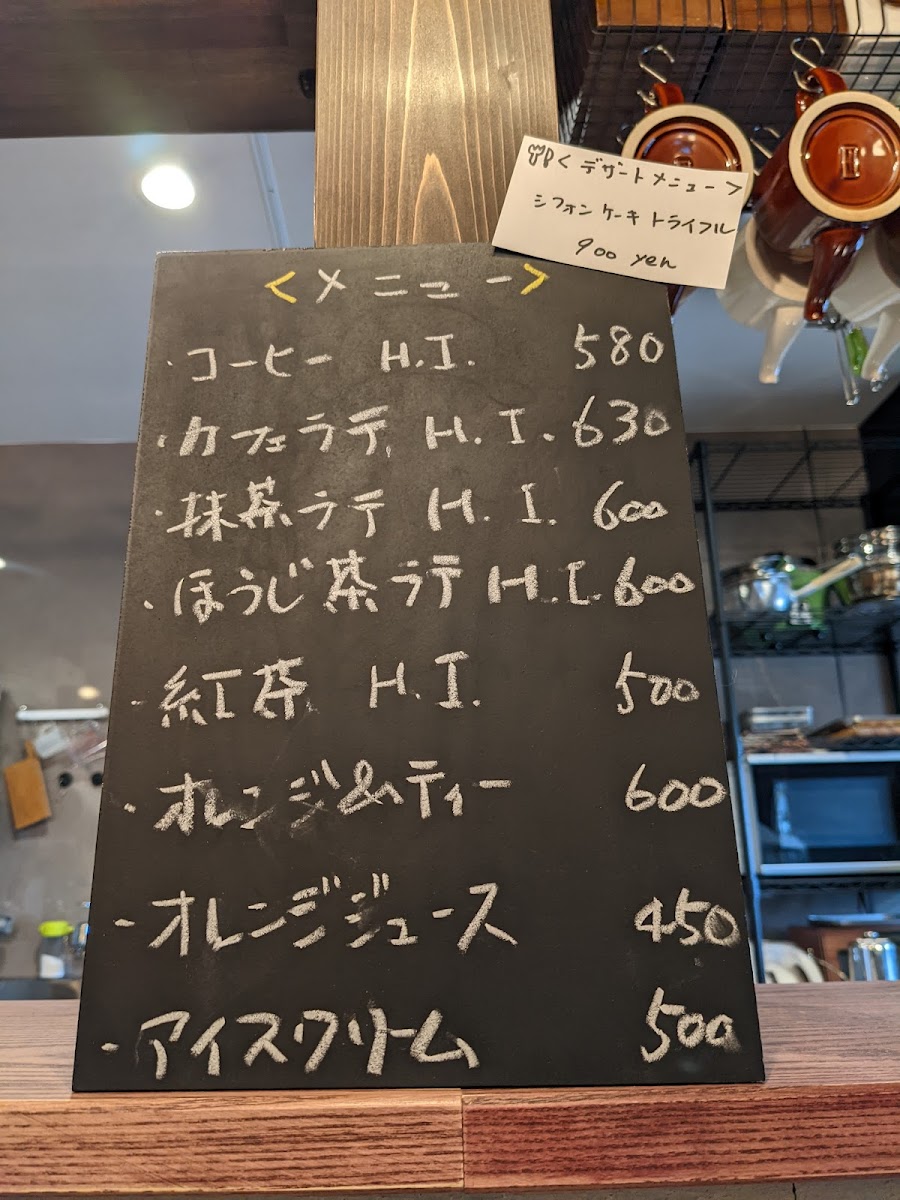 <デザートメニュー>
シフォンケーキトライフル
900 yen
<メニュー>
・コーヒー H.I. 580
・カフェラテ H.I. 630
・抹茶ラテ H.I. 600
・ほうじ茶ラテ H.I. 600
・紅茶 H.I. 500
・オレンジ&ティー 600
・オレンジジュース 450
・アイスクリーム 500